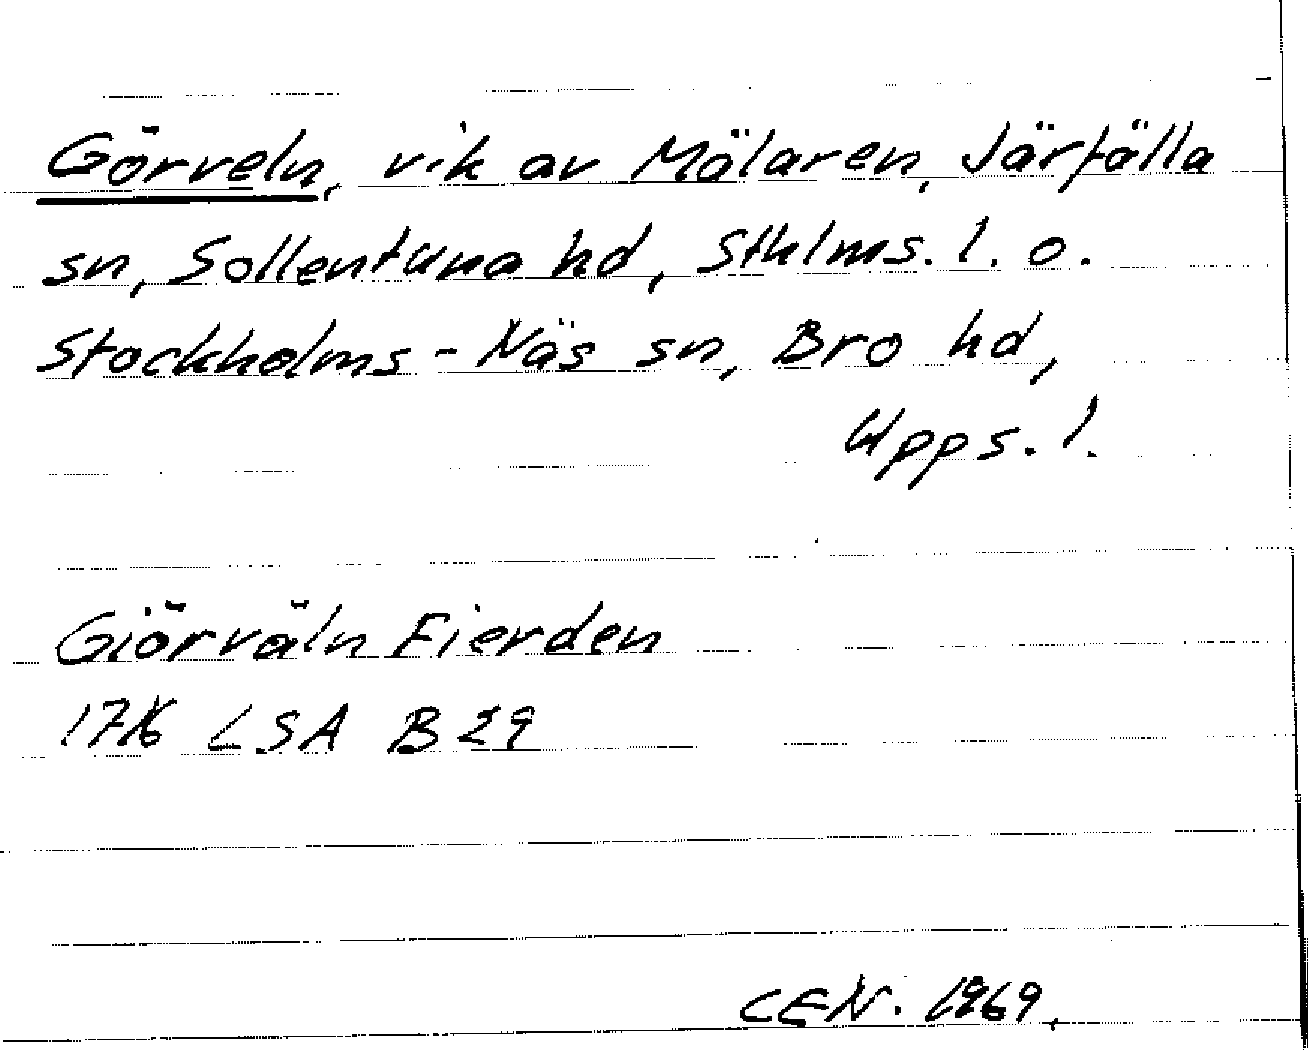 Görveln, vik av Mälaren, Järfälla
sn, Sollentuna hd, Sthlms. l. o.
Stockholms-Näs sn, Bro hd,
Upps. l.
Giörväln Fierden
1716 LSA B 29
CEN. 1969.